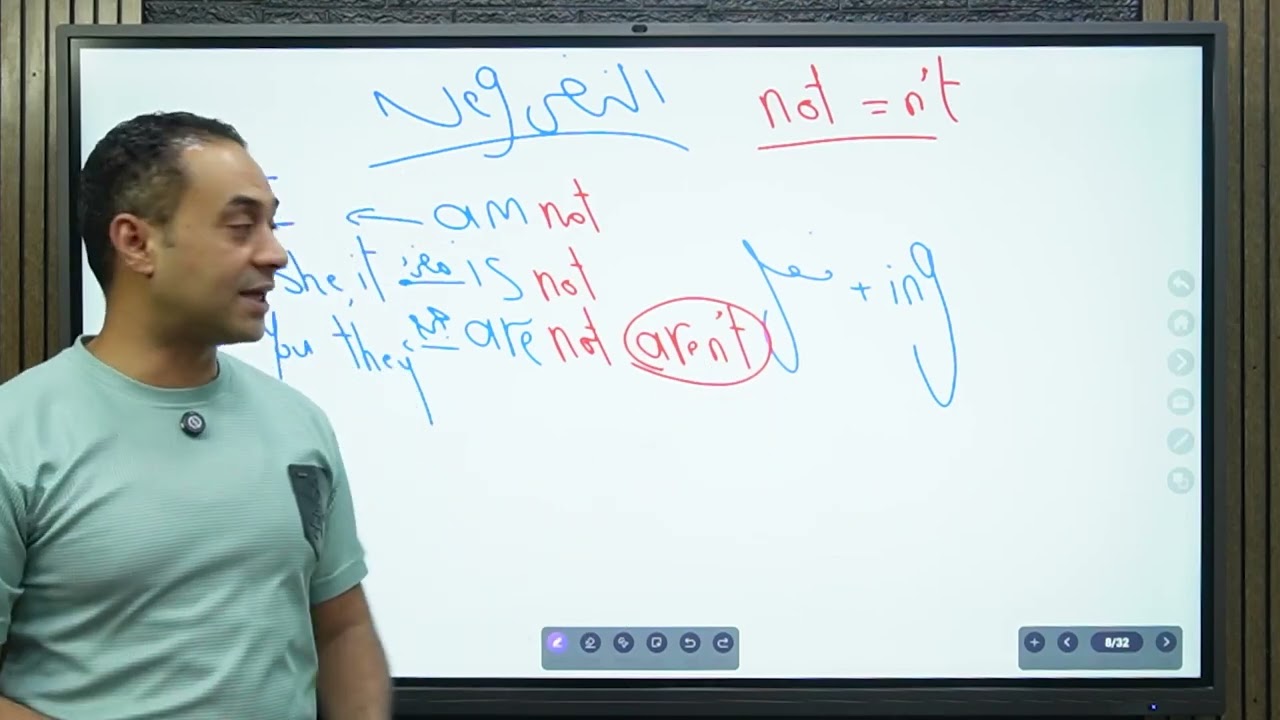 Neg النفي not = n't
am not
she, it مفرد is not
you they جمع are not aren't فعل + ing
8/32